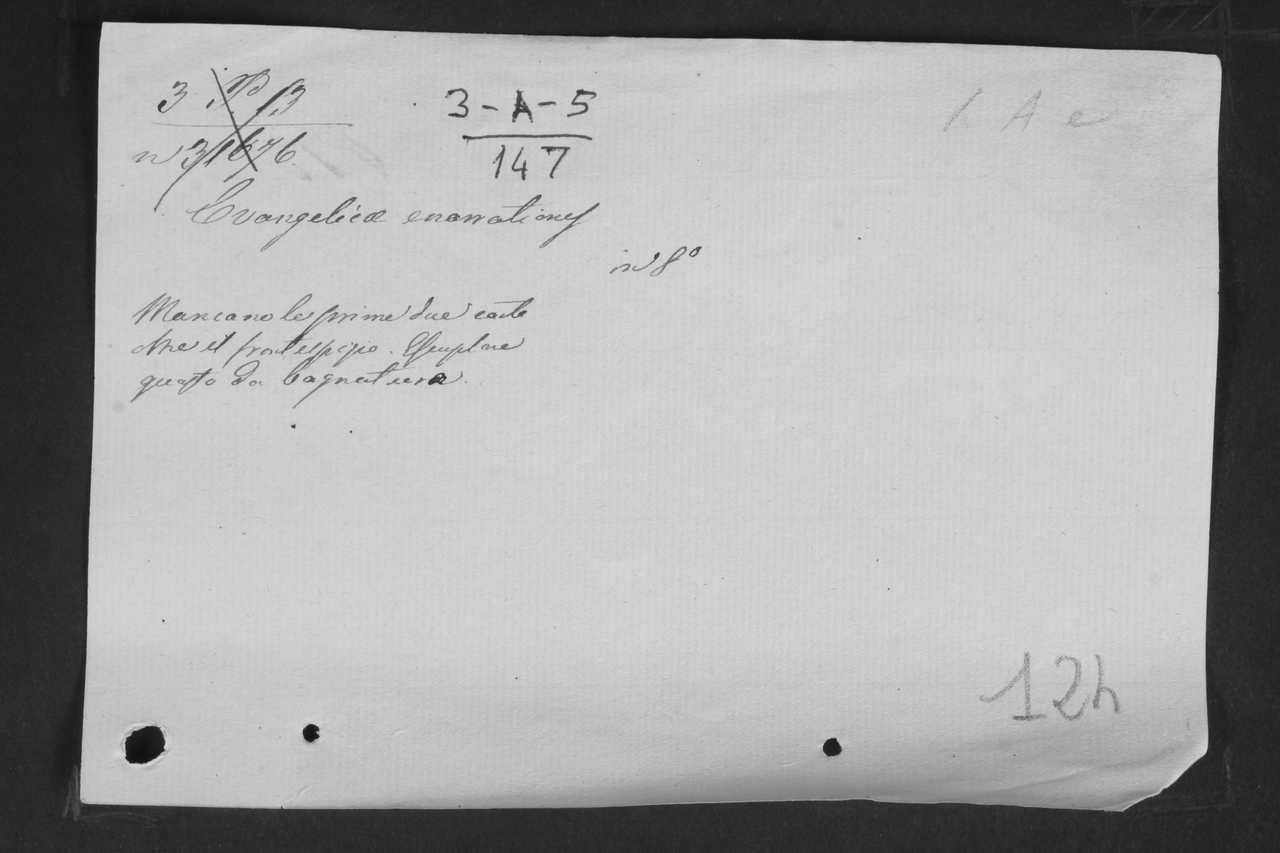 3 B 13
3-A-5
147
1 A e
n 31676
Evangelicæ enarrationes
in 8°
Mancano le prime due carte
oltre il frontespizio. Esemplare
guasto da bagnature.
12h